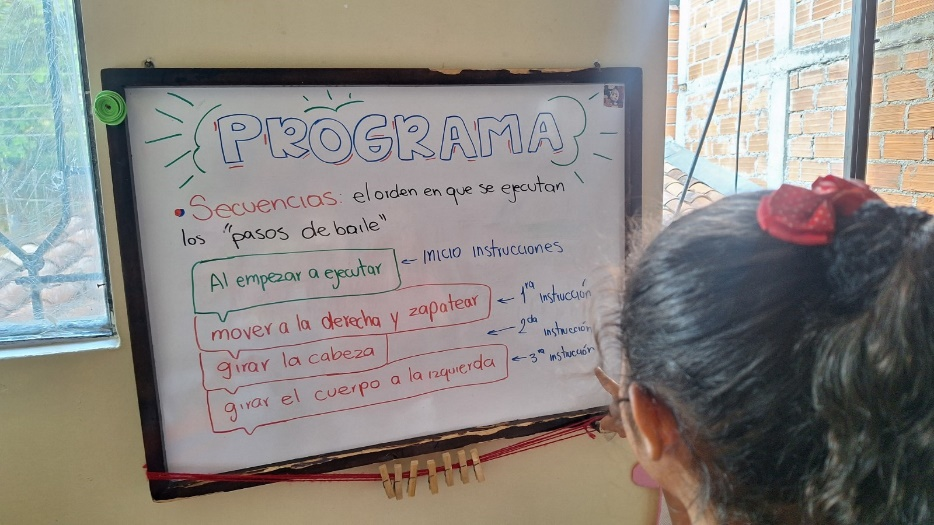 PROGRAMA
• Secuencias: el orden en que se ejecutan
los "pasos de baile"
Al empezar a ejecutar ← inicio instrucciones
mover a la derecha y zapatear ← 1ra instrucción
girar la cabeza ← 2da instrucción
girar el cuerpo a la izquierda ← 3ra instrucción